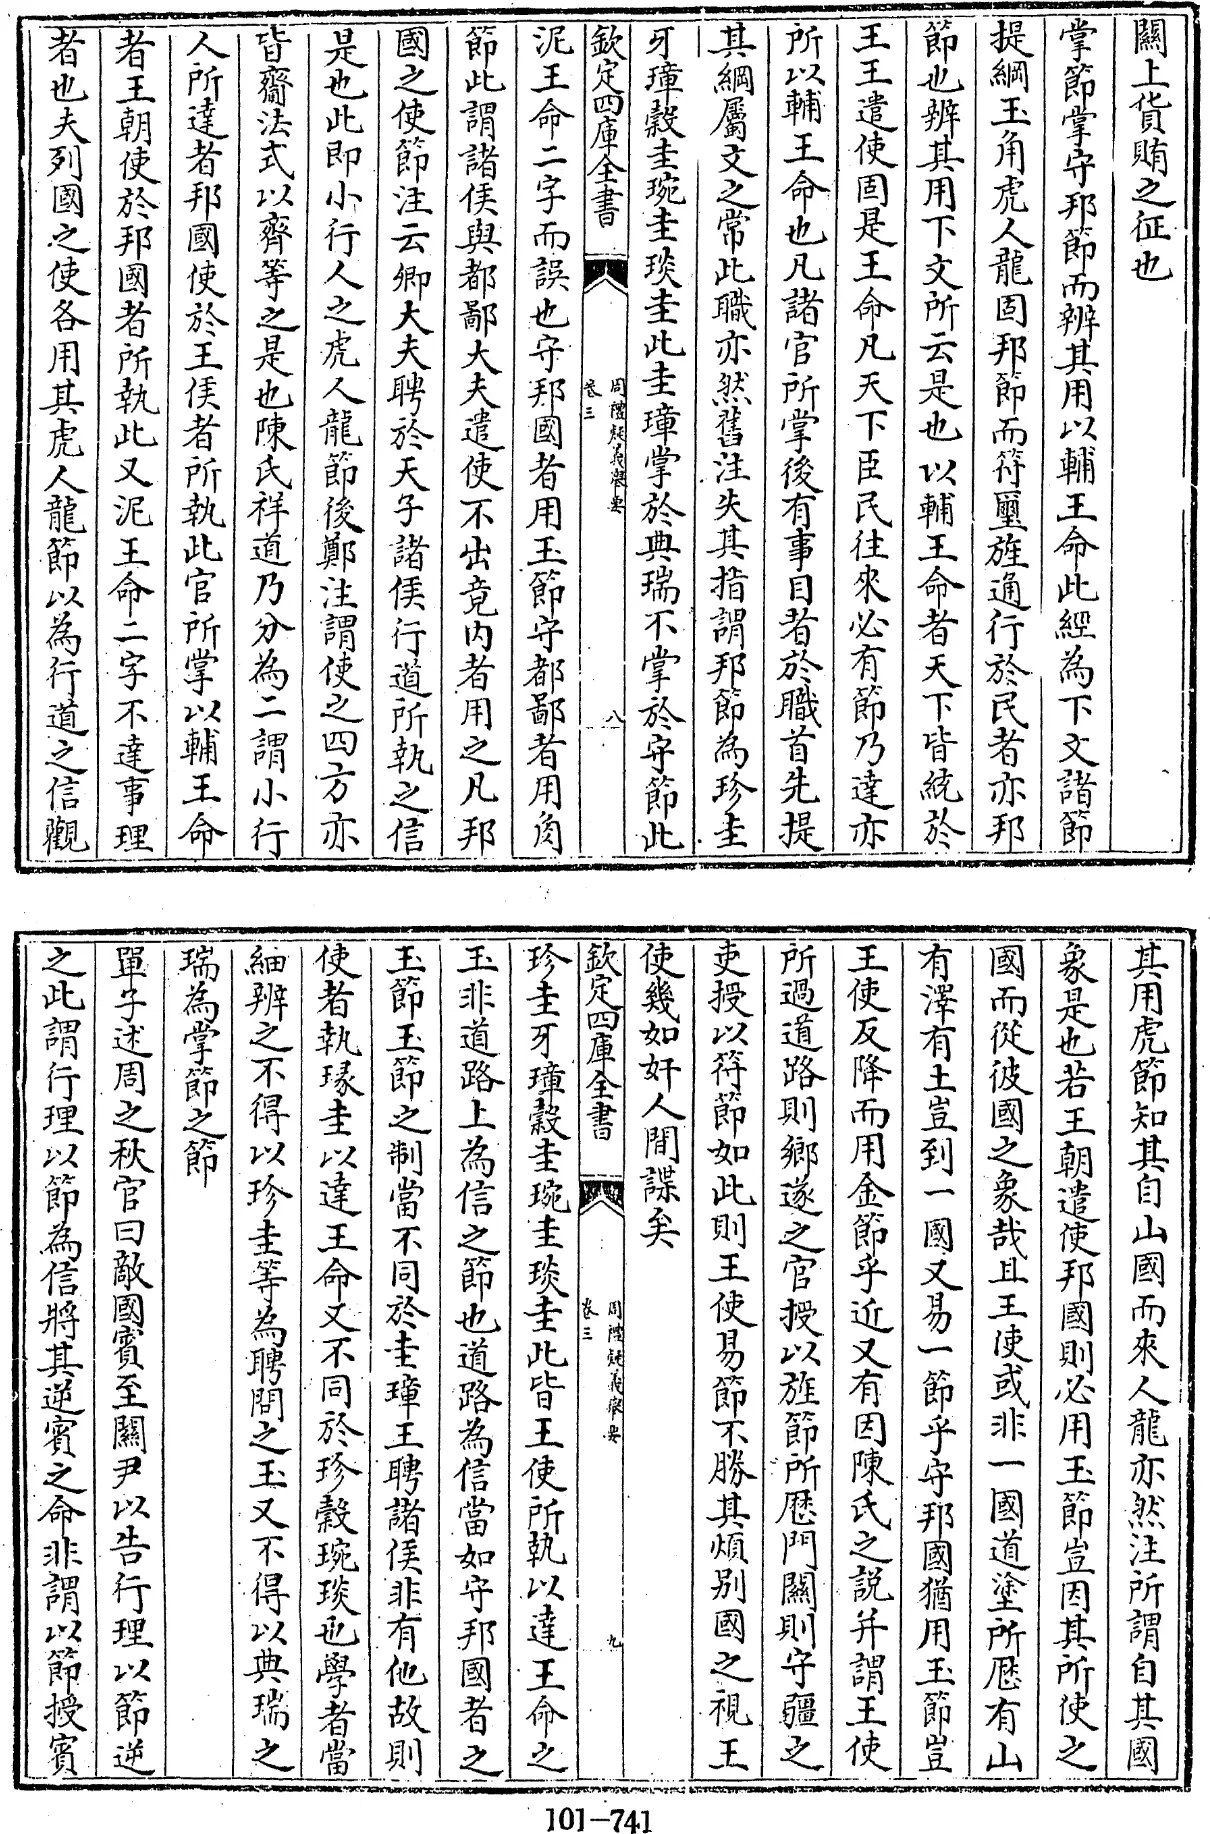 關上貨賄之征也
掌節掌守邦節而辨其用以輔王命此經為下文諸節
提綱玉角虎人龍固邦節而符璽旌通行於民者亦邦
節也辨其用下文所云是也以輔王命者天下皆統於
王王遣使固是王命凡天下臣民往來必有節乃達亦
所以輔王命也凡諸官所掌後有事目者於職首先提
其綱屬文之常此職亦然舊注失其指謂邦節為珍圭
牙璋穀圭琬圭琰圭此圭璋掌於典瑞不掌於守節此
欽定四庫全書
周禮疑義舉要
卷三
八
泥王命二字而誤也守邦國者用玉節守都鄙者用角
節此謂諸侯與都鄙大夫遣使不出竟内者用之凡邦
國之使節注云卿大夫聘於天子諸侯行道所執之信
是也此即小行人之虎人龍節後鄭注謂使之四方亦
皆齎法式以齊等之是也陳氏祥道乃分為二謂小行
人所達者邦國使於王侯者所執此官所掌以輔王命
者王朝使於邦國者所執此又泥王命二字不達事理
者也夫列國之使各用其虎人龍節以為行道之信觀
其用虎節知其自山國而來人龍亦然注所謂自其國
象是也若王朝遣使邦國則必用玉節豈因其所使之
國而從彼國之象哉且王使或非一國道塗所歴有山
有澤有土豈到一國又易一節乎守邦國猶用玉節豈
王使反降而用金節乎近又有因陳氏之説并謂王使
所過道路則鄉遂之官授以旌節所歴門關則守疆之
吏授以符節如此則王使易節不勝其煩别國之視王
使幾如奸人間諜矣
欽定四庫全書
周禮疑義舉要
卷三
九
珍圭牙璋穀圭琬圭琰圭此皆王使所執以達王命之
玉非道路上為信之節也道路為信當如守邦國者之
玉節玉節之制當不同於圭璋王聘諸侯非有他故則
使者執瑑圭以達王命又不同於珍穀琬琰也學者當
細辨之不得以珍圭等為聘問之玉又不得以典瑞之
瑞為掌節之節
單子述周之秋官曰敵國賓至關尹以告行理以節逆
之此謂行理以節為信將其逆賓之命非謂以節授賓
101-741